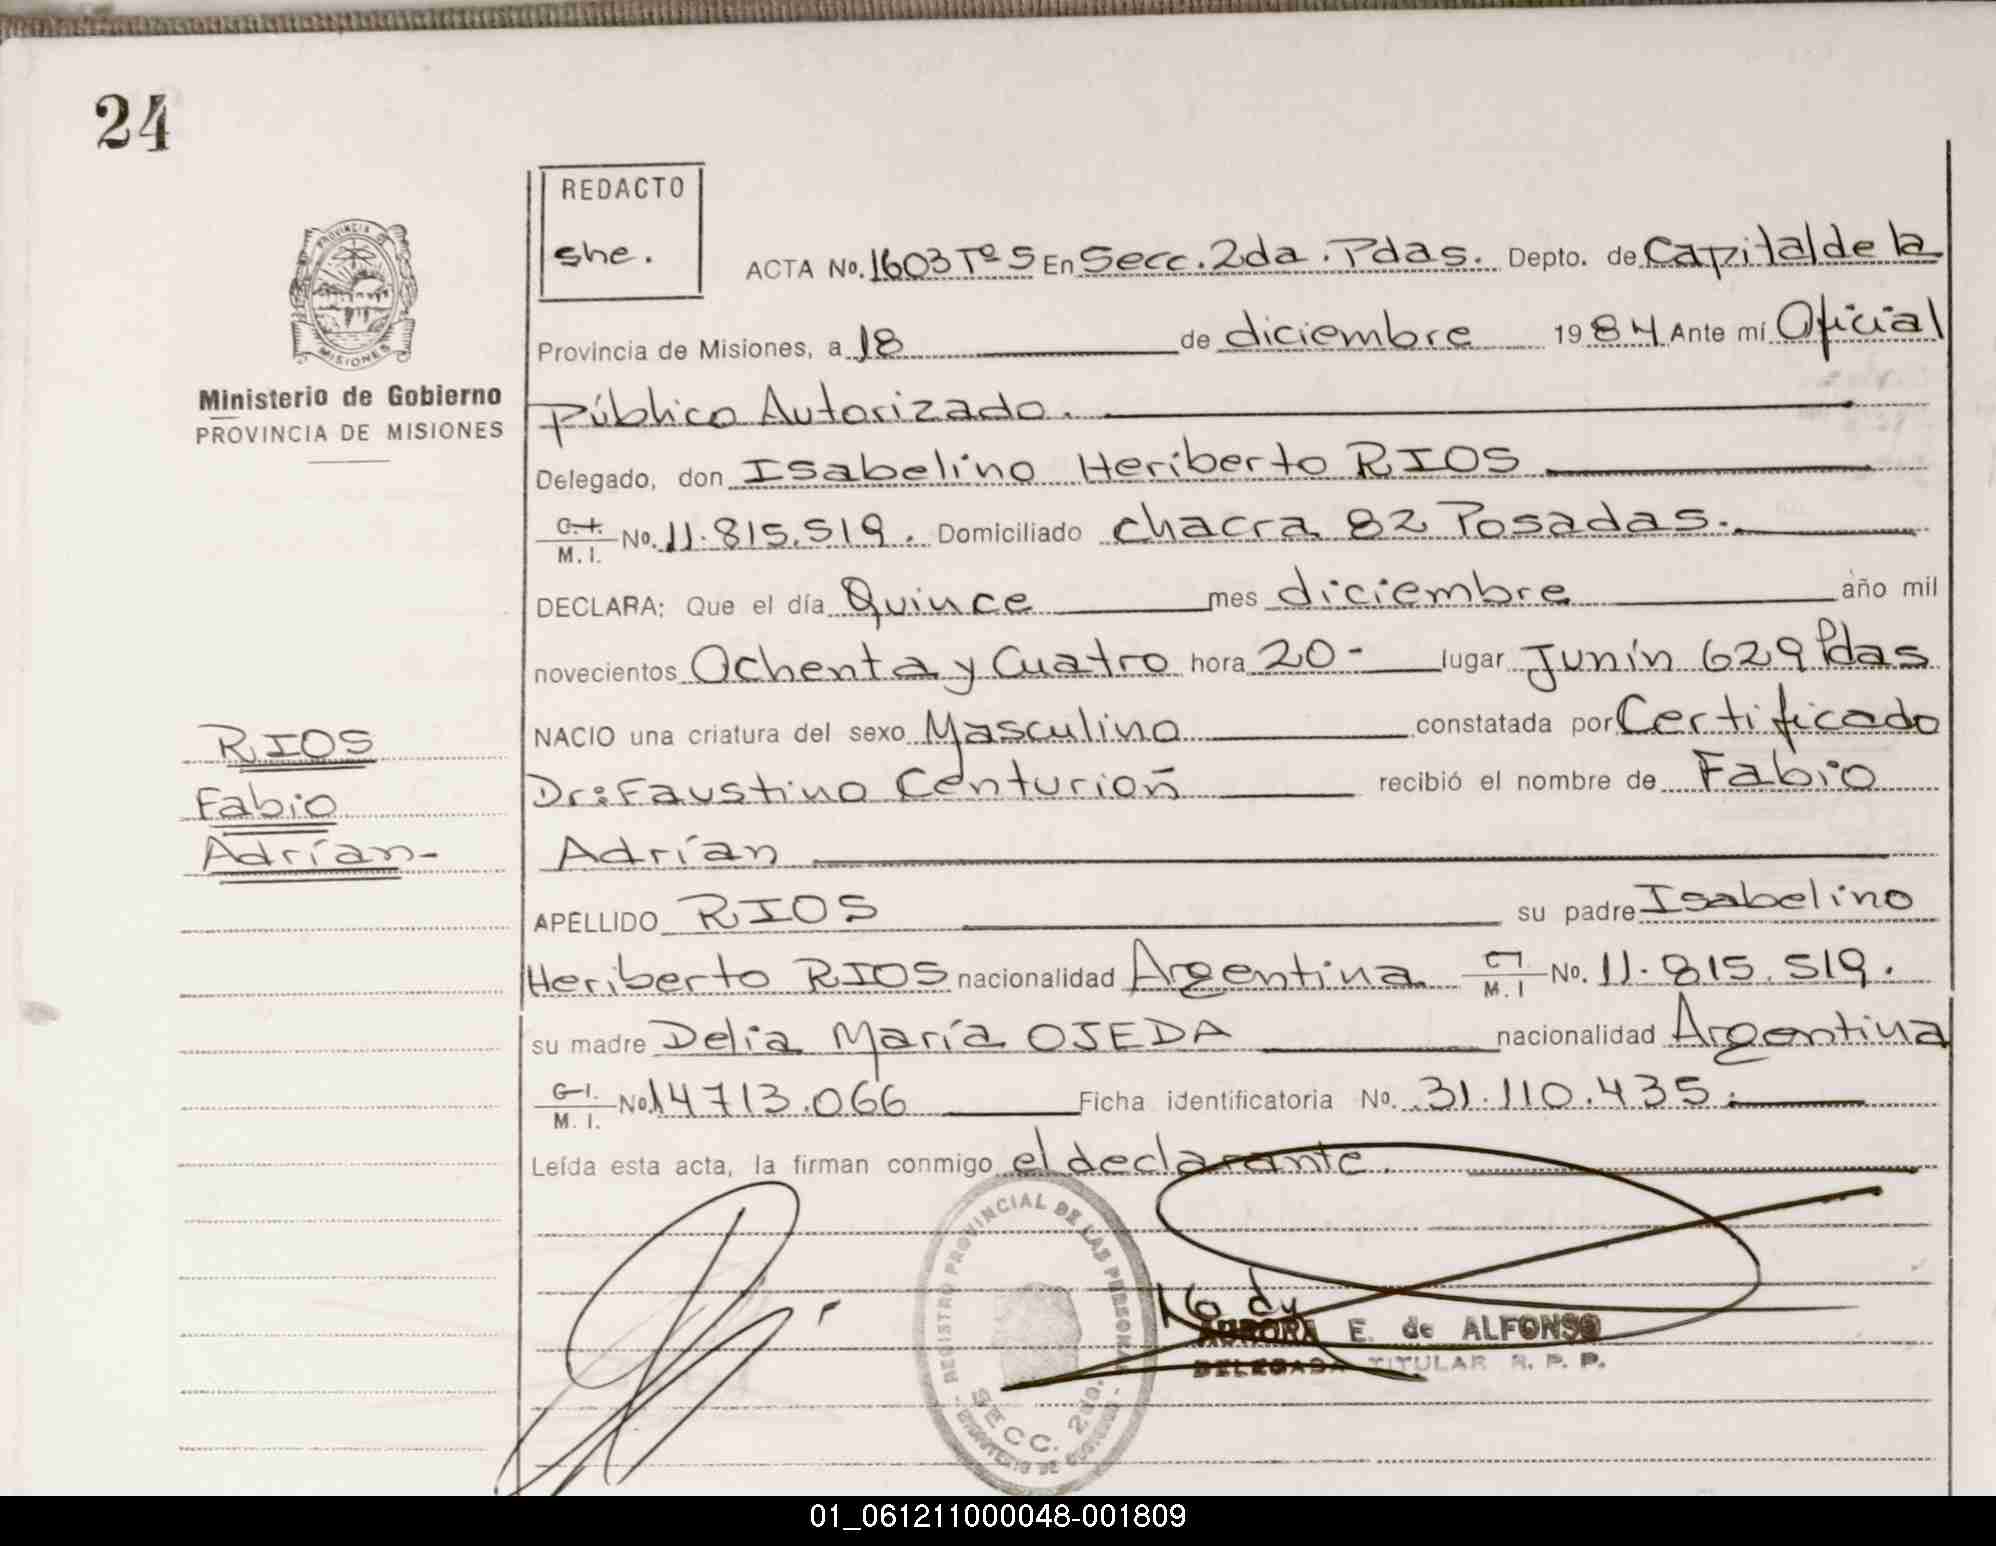 24
REDACTO
she.
PROVINCIA DE
MISIONES
Ministerio de Gobierno
PROVINCIA DE MISIONES
ACTA No. 1603 Tº 5 En Secc. 2da. Pdas. Depto. de Capital de la
Provincia de Misiones, a 18 de diciembre 1984 Ante mí Oficial
Público Autorizado.
Delegado, don Isabelino Heriberto RIOS
C.I. M. I. No. 11.815.519. Domiciliado chacra 82 Posadas.
DECLARA: Que el día Quince mes diciembre año mil
novecientos Ochenta y Cuatro hora 20- lugar Junín 629 Pdas
NACIO una criatura del sexo Masculino constatada por Certificado
Dr: Faustino Centurión recibió el nombre de Fabio
Adrían
APELLIDO RIOS su padre Isabelino
Heriberto RIOS nacionalidad Argentina C.I. M. I No. 11.815.519.
su madre Delia María OJEDA nacionalidad Argentina
C.I. M. I. No. 14713.066 Ficha identificatoria No. 31.110.435.
Leída esta acta, la firman conmigo el declarante.
RIOS
Fabio
Adrían-
REGISTRO PROVINCIAL DE LAS PERSONAS
SECC. 2da.
MINISTERIO DE GOBIERNO
AURORA E. de ALFONSO
DELEGADA TITULAR R. P. P.
01_061211000048-001809